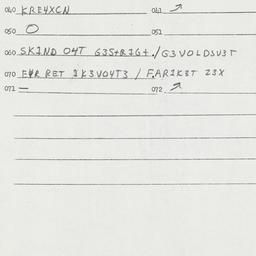 040 KREYXCN 041
050 O 051
060 SKIND O4T G3StRIGt./G3VOLDSV3T
070 F4R RET IK3VO4T3 / FARIK3T 23X
071 — 072